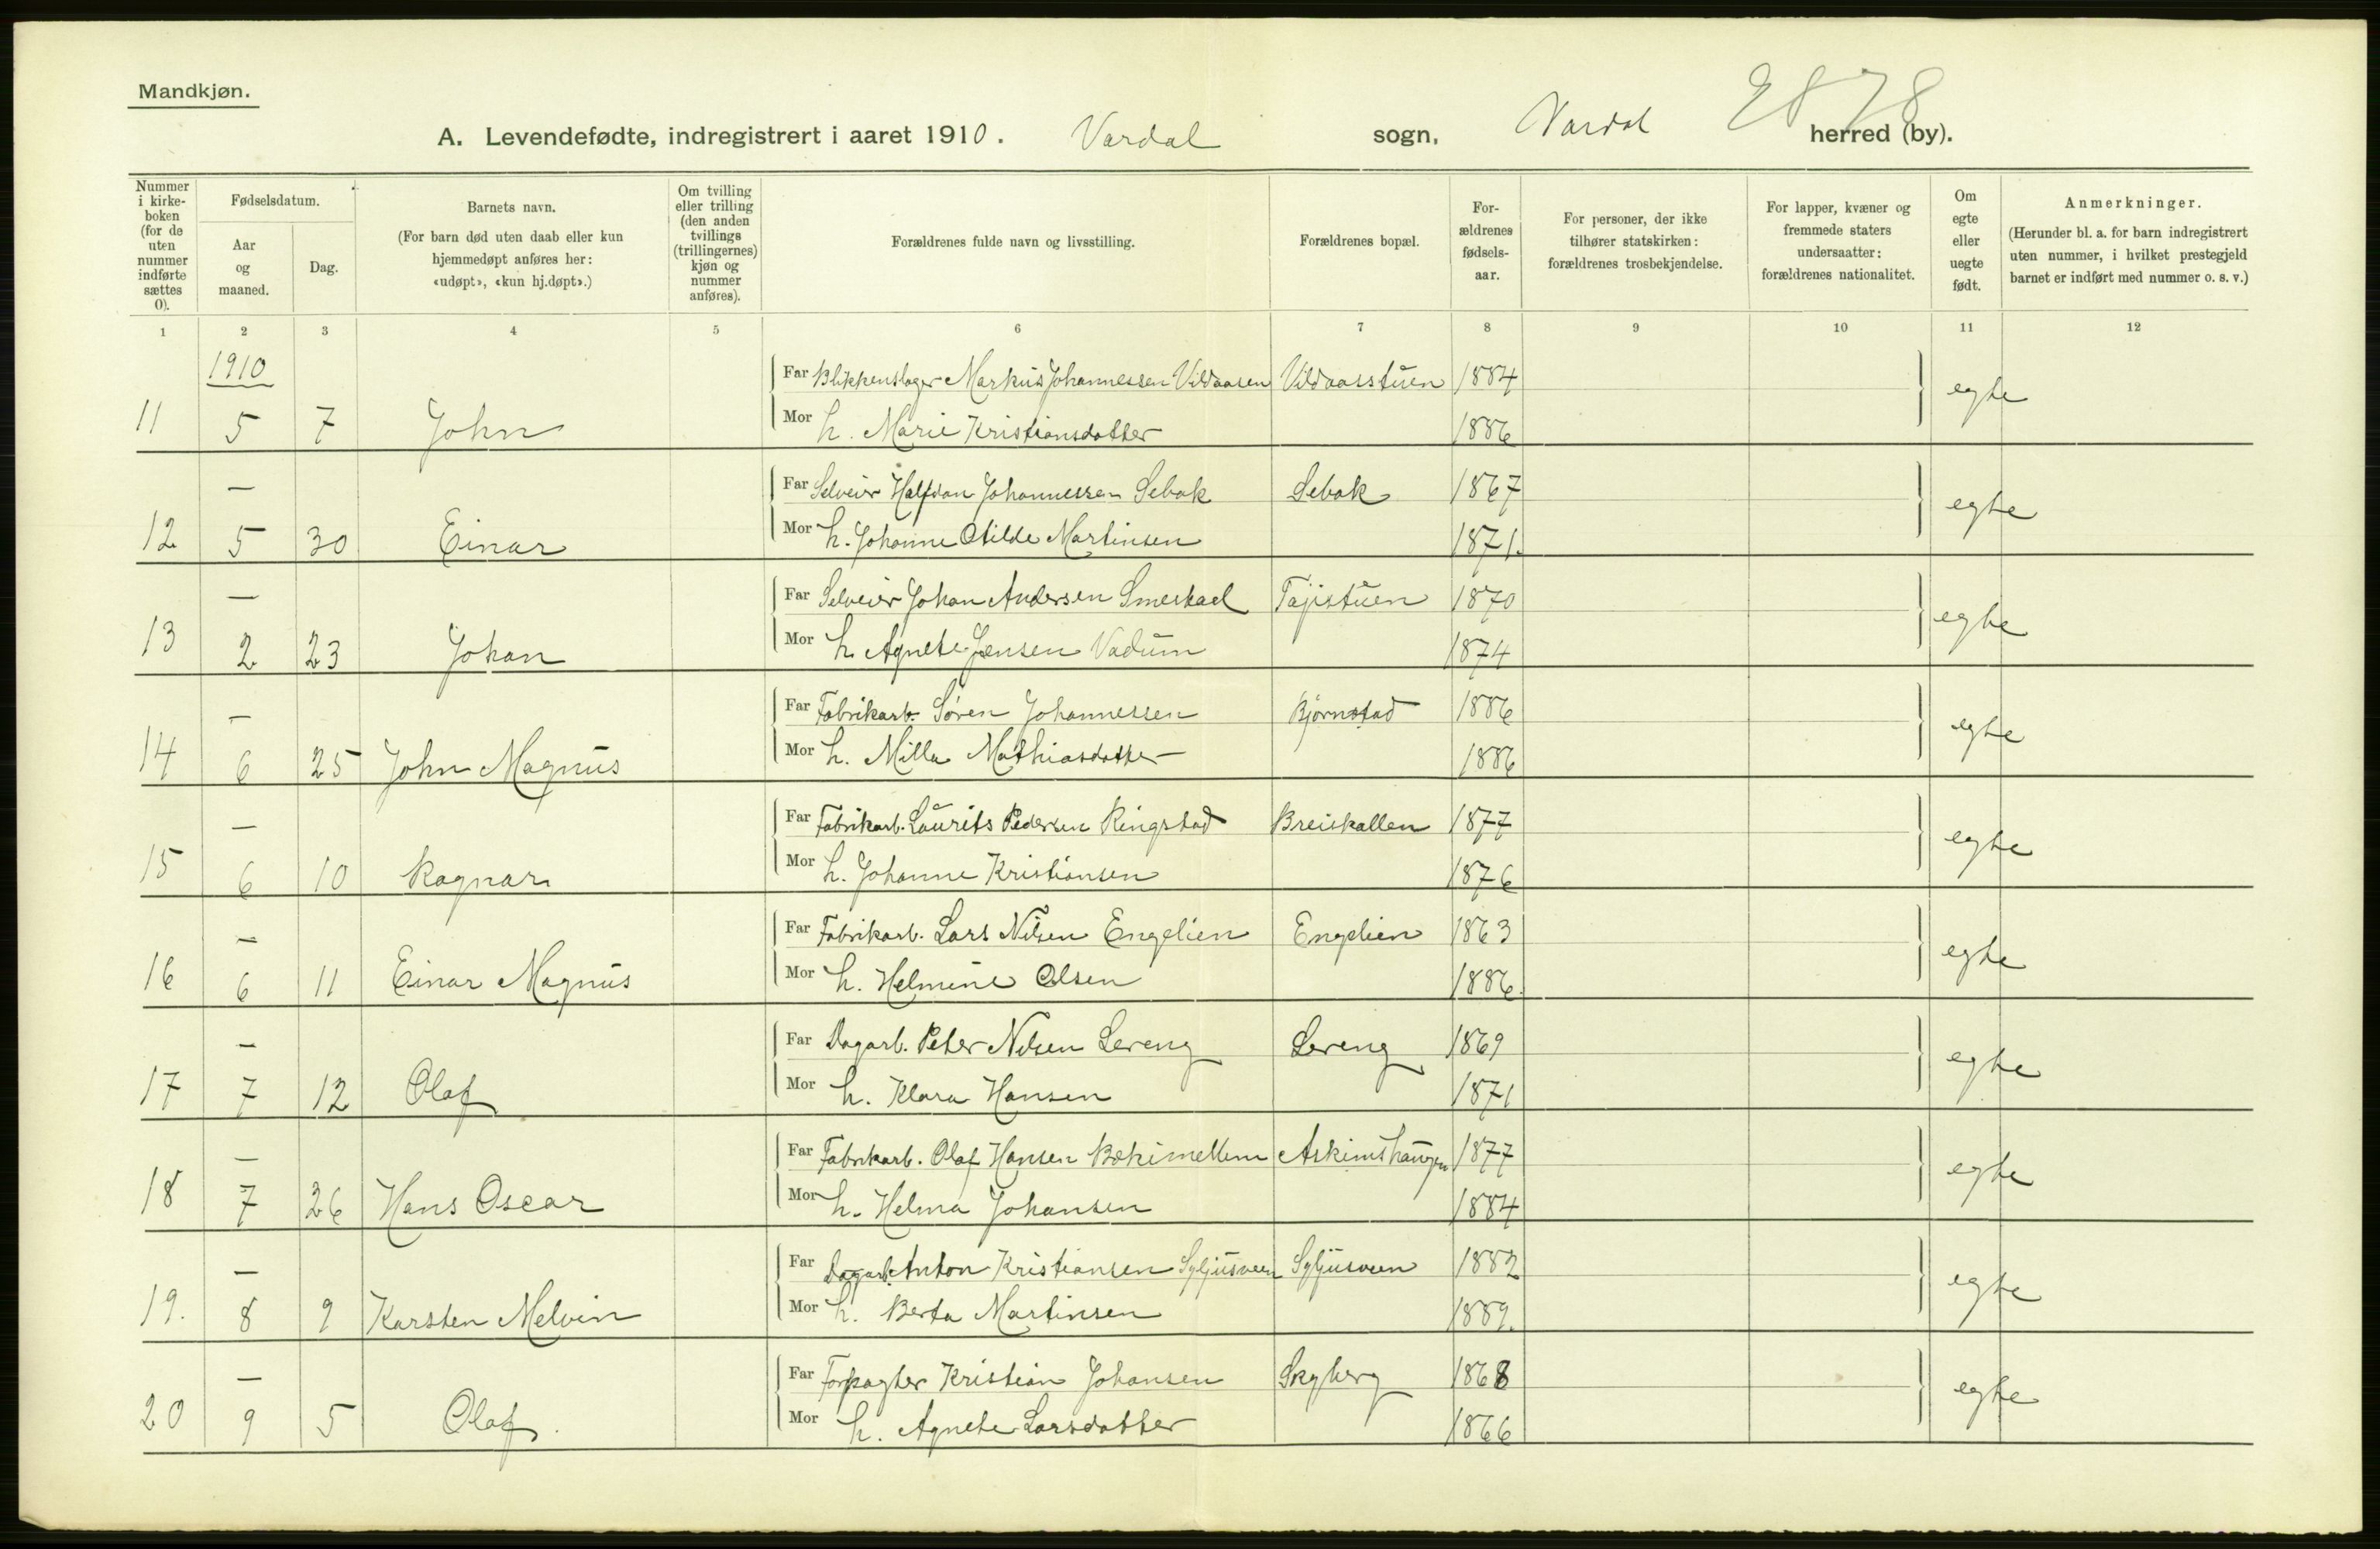 Mandkjøn.
2878
A. Levendefødte, indregistrert i aaret 1910. Vardal sogn, Vardal herred (by).
Nummer i kirkeboken (for de uten nummer indførte sættes 0).
Fødselsdatum.
Aar og maaned.
Dag.
Barnets navn.
(For barn død uten daab eller kun hjemmedøpt anføres her: «udøpt», «kun hj.døpt».)
Om tvilling eller trilling (den anden tvillings (trillingernes) kjøn og nummer anføres).
Forældrenes fulde navn og livsstilling.
Forældrenes bopæl.
Forældrenes fødselsaar.
For personer, der ikke tilhører statskirken: forældrenes trosbekjendelse.
For lapper, kvæner og fremmede staters undersaatter: forældrenes nationalitet.
Om egte eller uegte født.
Anmerkninger.
(Herunder bl. a. for barn indregistrert uten nummer, i hvilket prestegjeld barnet er indført med nummer o. s. v.)
1 2 3 4 5 6 7 8 9 10 11 12
1910
Far Blikkenslager Markus Johannessen Vildaasen Vildaasstuen 1884
11 5 7 John Mor h. Marie Kristiansdatter 1886 egte
— Far Selveier Halfdan Johannessen Sebak Sebak 1867
12 5 30 Einar Mor h. Johanne Otilde Martinsen 1871. egte
— Far Selveier Johan Andersen Smeskael Tajistuen 1870
13 2 23 Johan Mor h. Agnete Jensen Vadum 1874 egte
— Far Fabrikarb. Søren Johannessen Bjørnstad 1886
14 6 25 John Magnus Mor h. Milla Mathiasdatter 1886 egte
— Far Fabrikarb. Laurits Pedersen Ringstad Breiskallen 1877
15 6 10 Ragnar Mor h. Johanne Kristiansen 1876 egte
— Far Fabrikarb. Lars Nilsen Engelien Engelien 1863
16 6 11 Einar Magnus Mor h. Helmine Olsen 1886. egte
— Far Dagarb. Peter Nilsen Lereng Lereng 1869
17 7 12 Olaf Mor h. Klara Hansen 1871 egte
— Far Fabrikarb. Olaf Hansen Askimshaugen 1877
18 7 26 Hans Oscar Mor h. Helma Johansen 1884 egte
— Far Dagarb. Anton Kristiansen Syljusveen Syljusveen 1882
19. 8 9 Karsten Melvin Mor h. Berta Martinsen 1889. egte
— Far Forpagter Kristian Johansen Skyberg 1868
20 9 5 Olaf. Mor h. Agnete Larsdatter 1866 egte